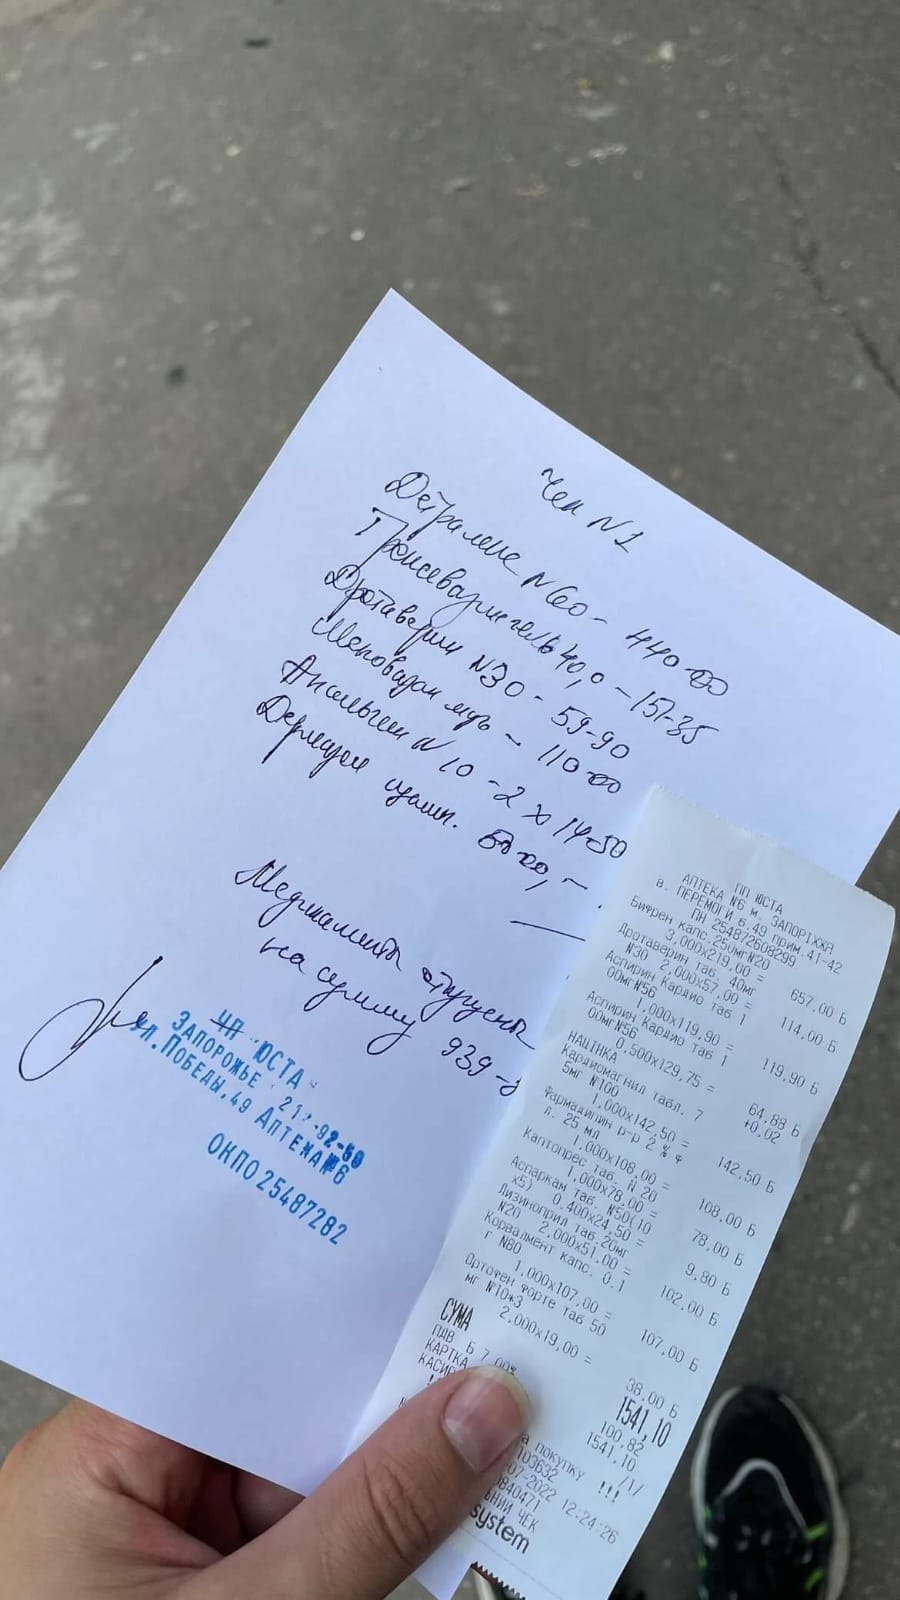 Чек N1
Детралекс N60 - 440-00
Троксевазин гель 40,0 - 151-35
Дротаверин N30 - 59-90
Меновазан мазь - 110-00
Анальгин N10 - 2 х 14-50
Дермазин
Медикаменты отпущены
на сумму 939-
ЧП ЮСТА
ЗАПОРОЖЬЕ
ПОБЕДЫ, 49 АПТЕКА№6
ОКПО 25487282
ПП ЮСТА
АПТЕКА №6 м. ЗАПОРІЖЖЯ
в. ПЕРЕМОГИ б.49 прим.41-42
ПН 254872608299
Бифрен капс 250мг№20
3,000x219,00 = 657,00 Б
Дротаверин таб. 40мг
№30 2,000x57,00 = 114,00 Б
Аспирин Кардио таб 1
00мг№56
1,000x119,90 = 119,90 Б
Аспирин Кардио таб 1
00мг№56
0,500x129,75 = 64,88 Б
НАЦІНКА +0,02
Кардиомагнил табл. 7
5мг №100
1,000x142,50 = 142,50 Б
Фармадипин р-р 2 % ф
л. 25 мл
1,000x108,00 = 108,00 Б
Каптопрес таб. N 20
1,000x78,00 = 78,00 Б
Аспаркам таб. №50(10
х5) 0,400x24,50 = 9,80 Б
Лизиноприл таб.20мг
№20 2,000x51,00 = 102,00 Б
Корвалмент капс. 0.1
г №80
1,000x107,00 = 107,00 Б
Ортофен форте таб 50
мг №10*3
2,000x19,00 = 38,00 Б
СУМА 1541,10
ПДВ Б 7,00% 100,82
КАРТКА 1541,10
КАСИР /1/
покупку !!!
103632
07-2022 12:24:26
0840471
ЧЕК
system